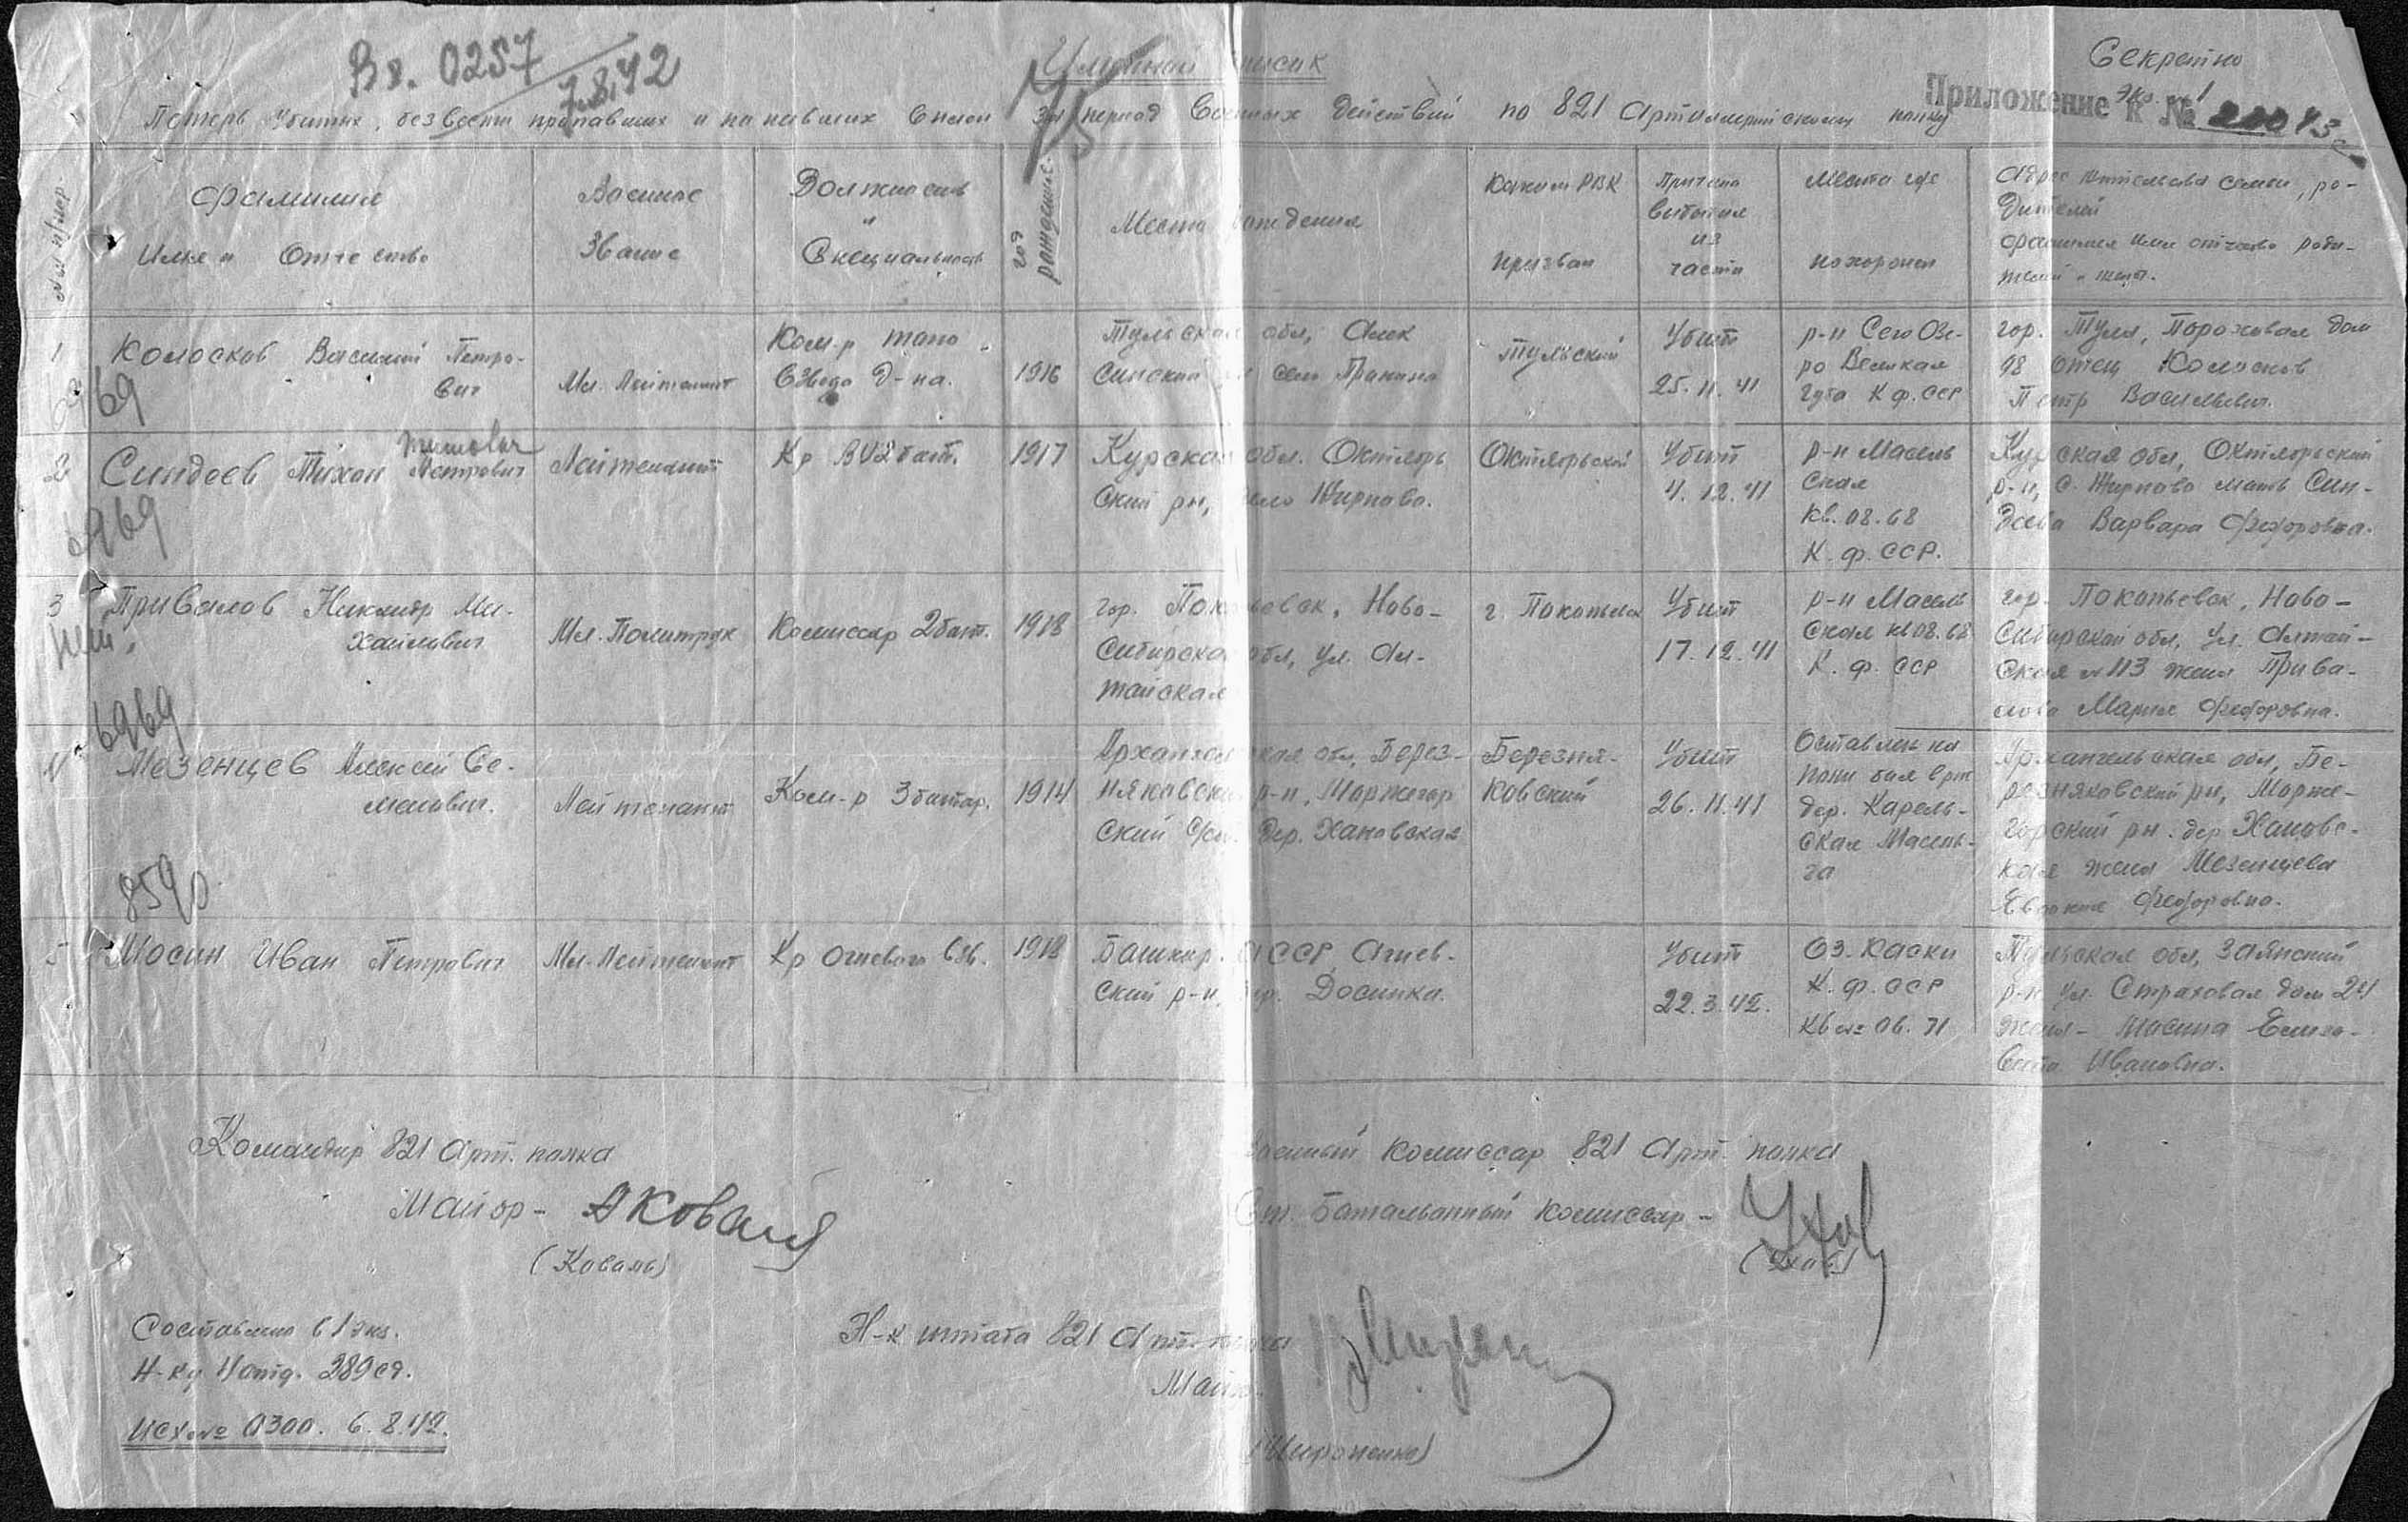 Секретно
Экз. №1
Вх. 0257
7.8.42
Именной список
Приложение к №
Потерь убитых, без вести пропавших и попавших в плен за период Военных действий по 821 Артиллерийскому полку
Фамилия
Имя и Отчество
Военное
Звание
Должность
и
Специальность
год
рождения
Место рождения
Каким РВК
призван
Причина
выбытия
из
части
Место где
похоронен
Адрес жительства семьи, ро-
дителей
фамилия имя отчество роди-
телей и жены.
1
Колосков Василий Петро-
вич
Мл. Лейтенант
Ком-р топо
взвода д-на.
1916
Тульская обл, Алек
синский р-н село Пронино
Тульский
Убит
25.11.41
р-н Сего Озе-
ро Великая
Губа К.ф.ССР
гор. Тула, Пороховая дом
98 отец Колосков
Петр Васильевич.
2
Синдеев Тихон Петрович
Титович
Лейтенант
Кр ВУ 2 бат.
1917
Курская обл. Октябрь
ский рн, село Жирново.
Октябрьский
Убит
4.12.41
р-н Масель
ская
кв. 08.68
К.ф.ССР.
Курская обл, Октябрьский
р-н, с. Жирново мать Син-
деева Варвара Федоровна.
3
Привалов Никандр Ми-
хайлович
Мл. Политрук
Комиссар 2 бат.
1918
гор. Прокопьевск, Ново-
Сибирская обл, ул. Ал-
тайская
Убит
17.12.41
р-н Масель
ская кв 08.68
К.ф.ССР
гор. Покопьевск, Ново-
Сибирской обл, ул. Алтай-
ская №113 жена Прива-
лова Мария Федоровна.
6969
4
Мезенцев Алексей Се-
менович.
Лейтенант
Ком-р 3 батар.
1914
Архангельская обл, Берез-
няковский р-н, Моржегор
ский с/сов. дер. Хановская
Березня-
ковский
Убит
26.11.41
Оставлен на
поли боя в р-не
дер. Карель-
ская Масель-
га
Архангельская обл, Бе-
резняковский рн, Морже-
горский рн. дер Хановс-
кая жена Мезенцева
Евдокия Федоровна.
5
Мосин Иван Петрович
Мл. Лейтенант
Кр огневого взв.
1918
Башкир. АССР
ский р-н, дер. Досинка.
Убит
22.3.42.
Оз. Каски
К.ф.ССР
кв № 06.71
Тульская обл,
р-н ул. Страховая дом 24
жена - Мосина Елиза-
вета Ивановна.
Командир 821 Арт. полка
Майор -
(Коваль)
Военный комиссар 821 Арт. полка
Ст. Батальонный комиссар -
Н-к штаба 821 Арт. полка
Майор.
Составлено в 1 экз.
Н-ку 4 отд. 289 сд.
Исх № 0300. 6.8.42.